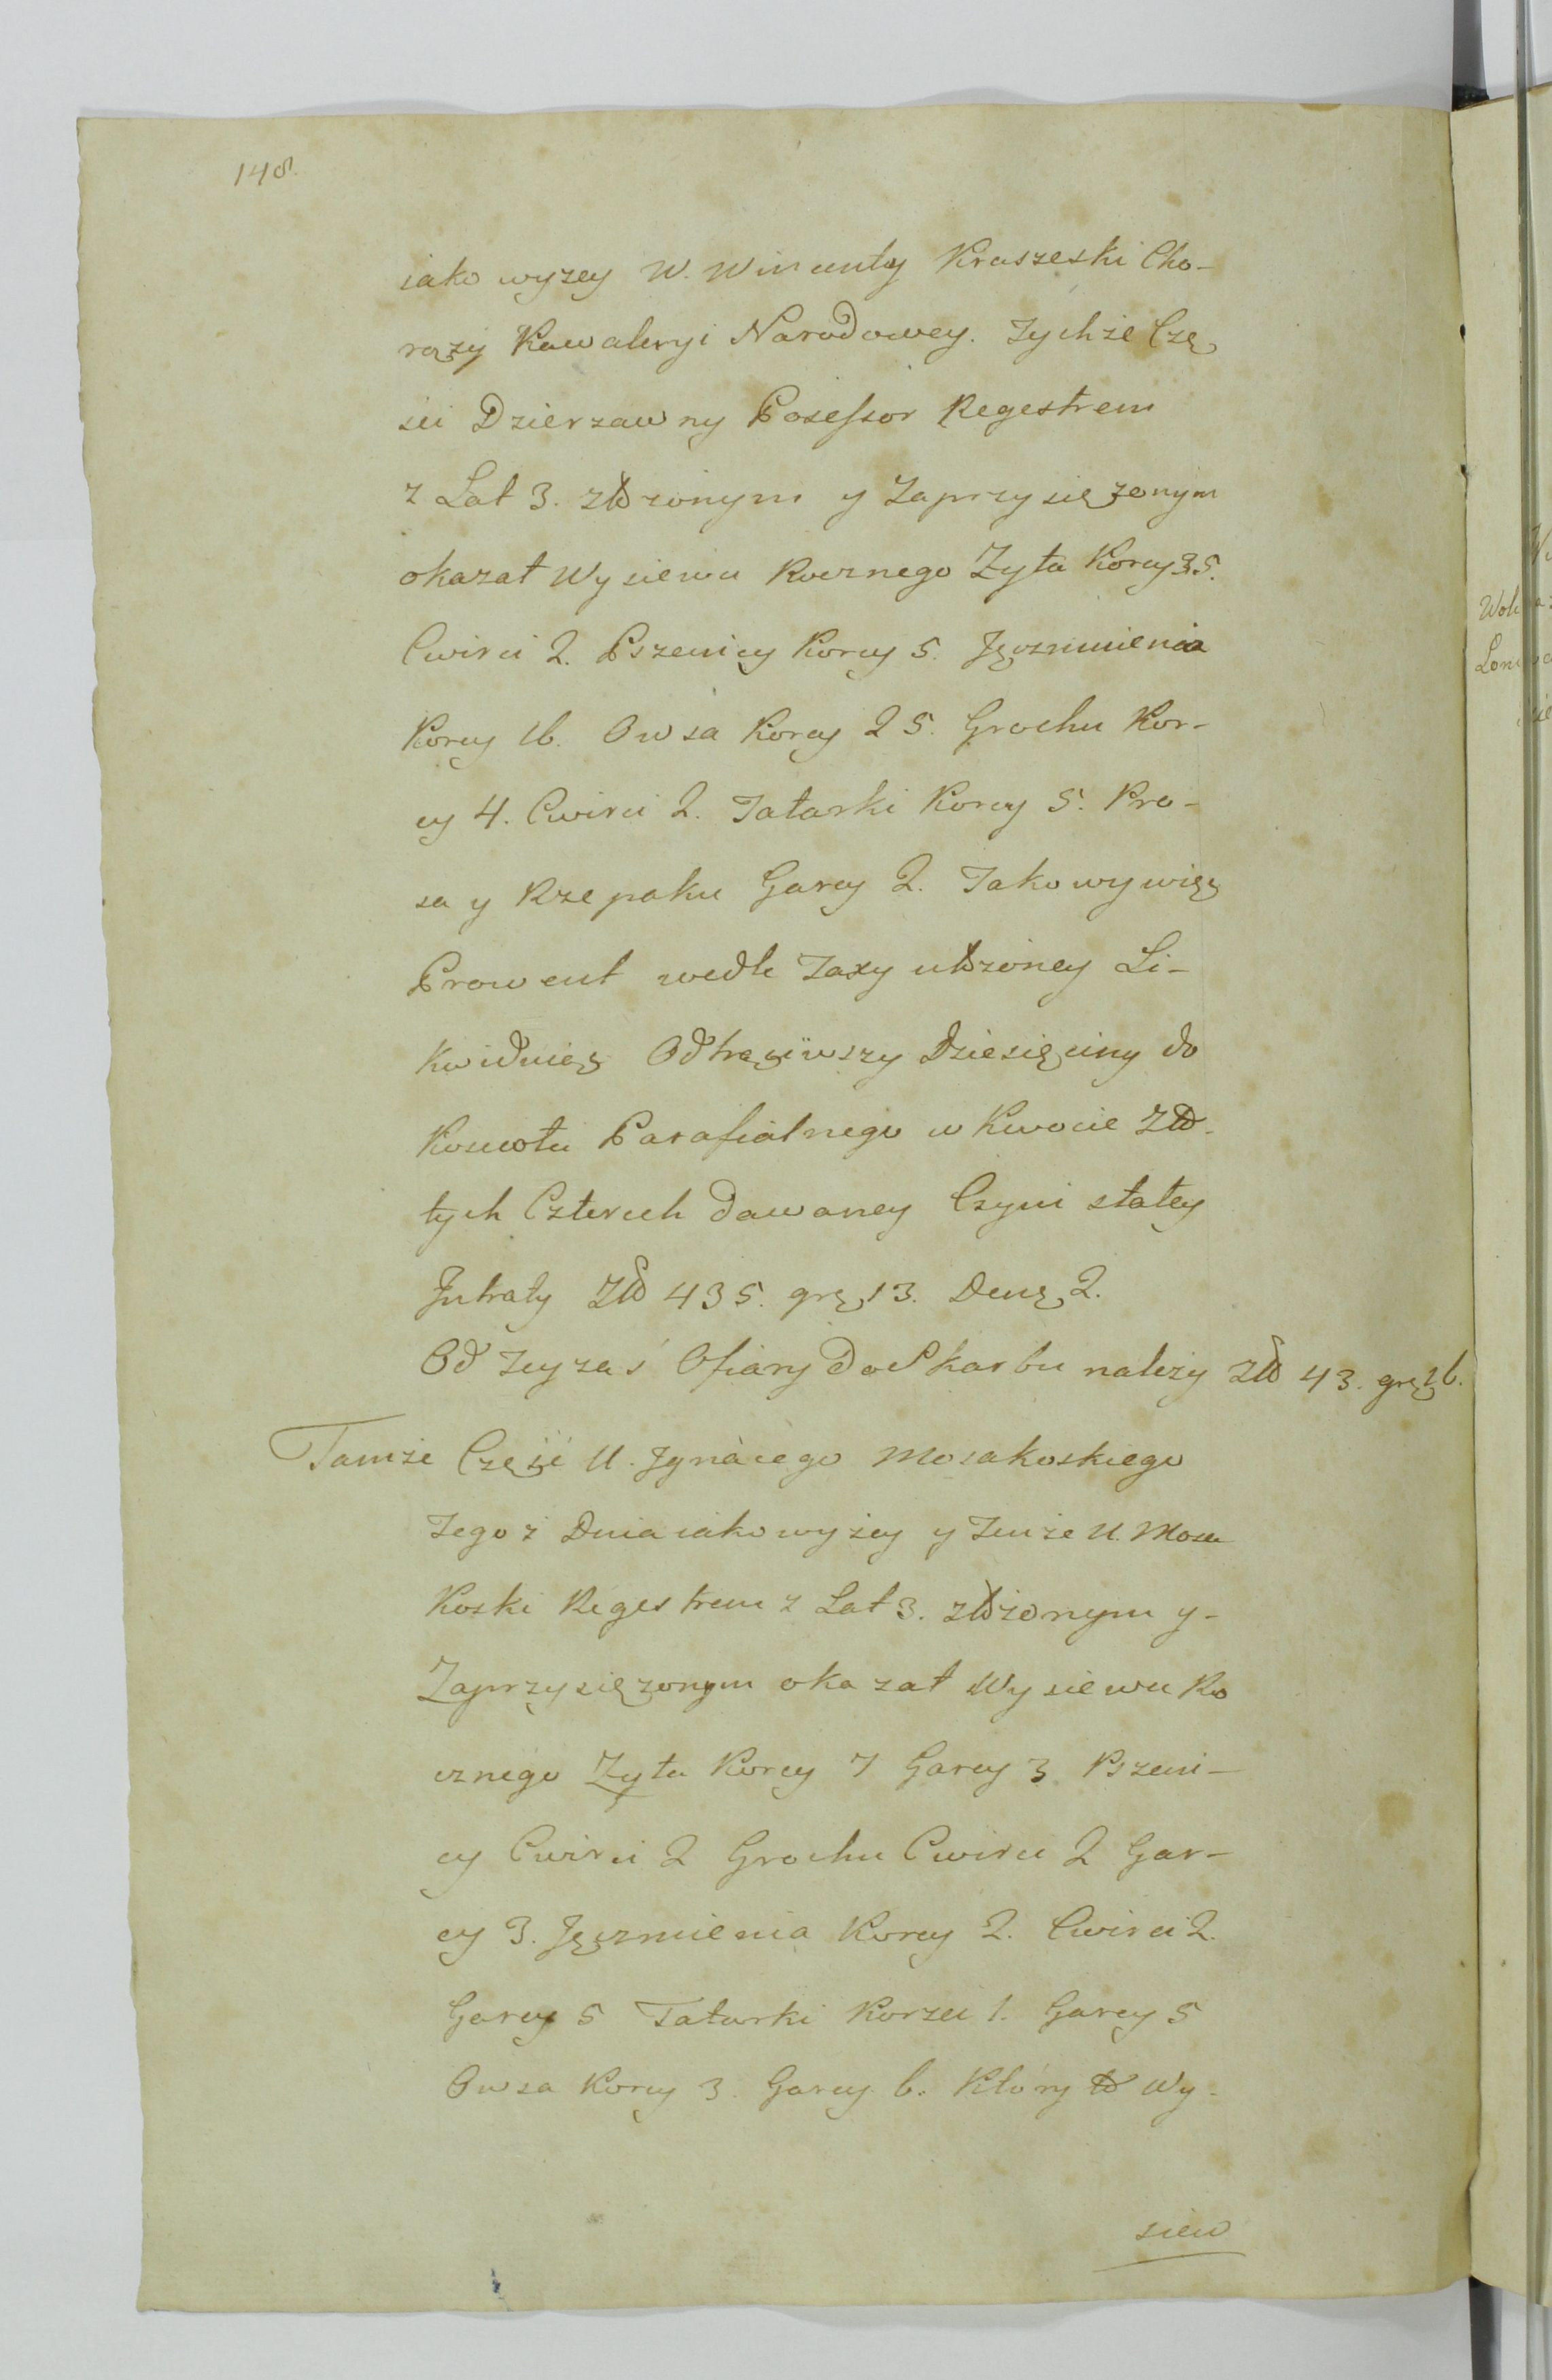 148.
iako wyzey W. Wincenty Kraszeski Cho-
rązy Kawaleryi Narodowey. Tychże Czę
sci Dzierzawny Posessor Regestrem
z Lat 3. złożonym y Zaprzysięzonym
okazał Wysiewu Rocznego Zyta Korcy 35.
Cwirci 2. Pszenicy Korcy 5. Jęczmienia
Korcy 16. Owsa Korcy 25. Grochu Kor-
cy 4. Cwirci 2. Tatarki Korcy 5. Pro-
sa y Rzepaku Garcy 2. Takowy więc
Prowent wedle Taxy ułożoney Li-
kwiduiąc Odtrąciwszy Dziesięciny do
Koscioła Parafialnego w Kwocie Zło-
tych Czterech dawaney Czyni stałey
Jntraty Zło 435. grę 13. Denę 2.
Od Tey zaś Ofiary do Skarbu należy Zło 43. grę 16.
Tamże Część U. Jgnacego Mosakoskiego
Tegoż Dnia iako wyżey y Tenże U. Mosa
koski Regestrem z Lat 3. złożonym y-
Zaprzysięzonym okazał Wysiewu Ro
cznego Zyta Korcy 7 Garcy 3 Pszeni-
cy Cwirci 2 Grochu Cwirci 2 Gar-
cy 3. Jęczmienia Korcy 2. Cwirci 2.
Garcy 5 Tatarki Korzec 1. Garcy 5
Owsa Korcy 3. Garcy 6. Który to Wy-
siew